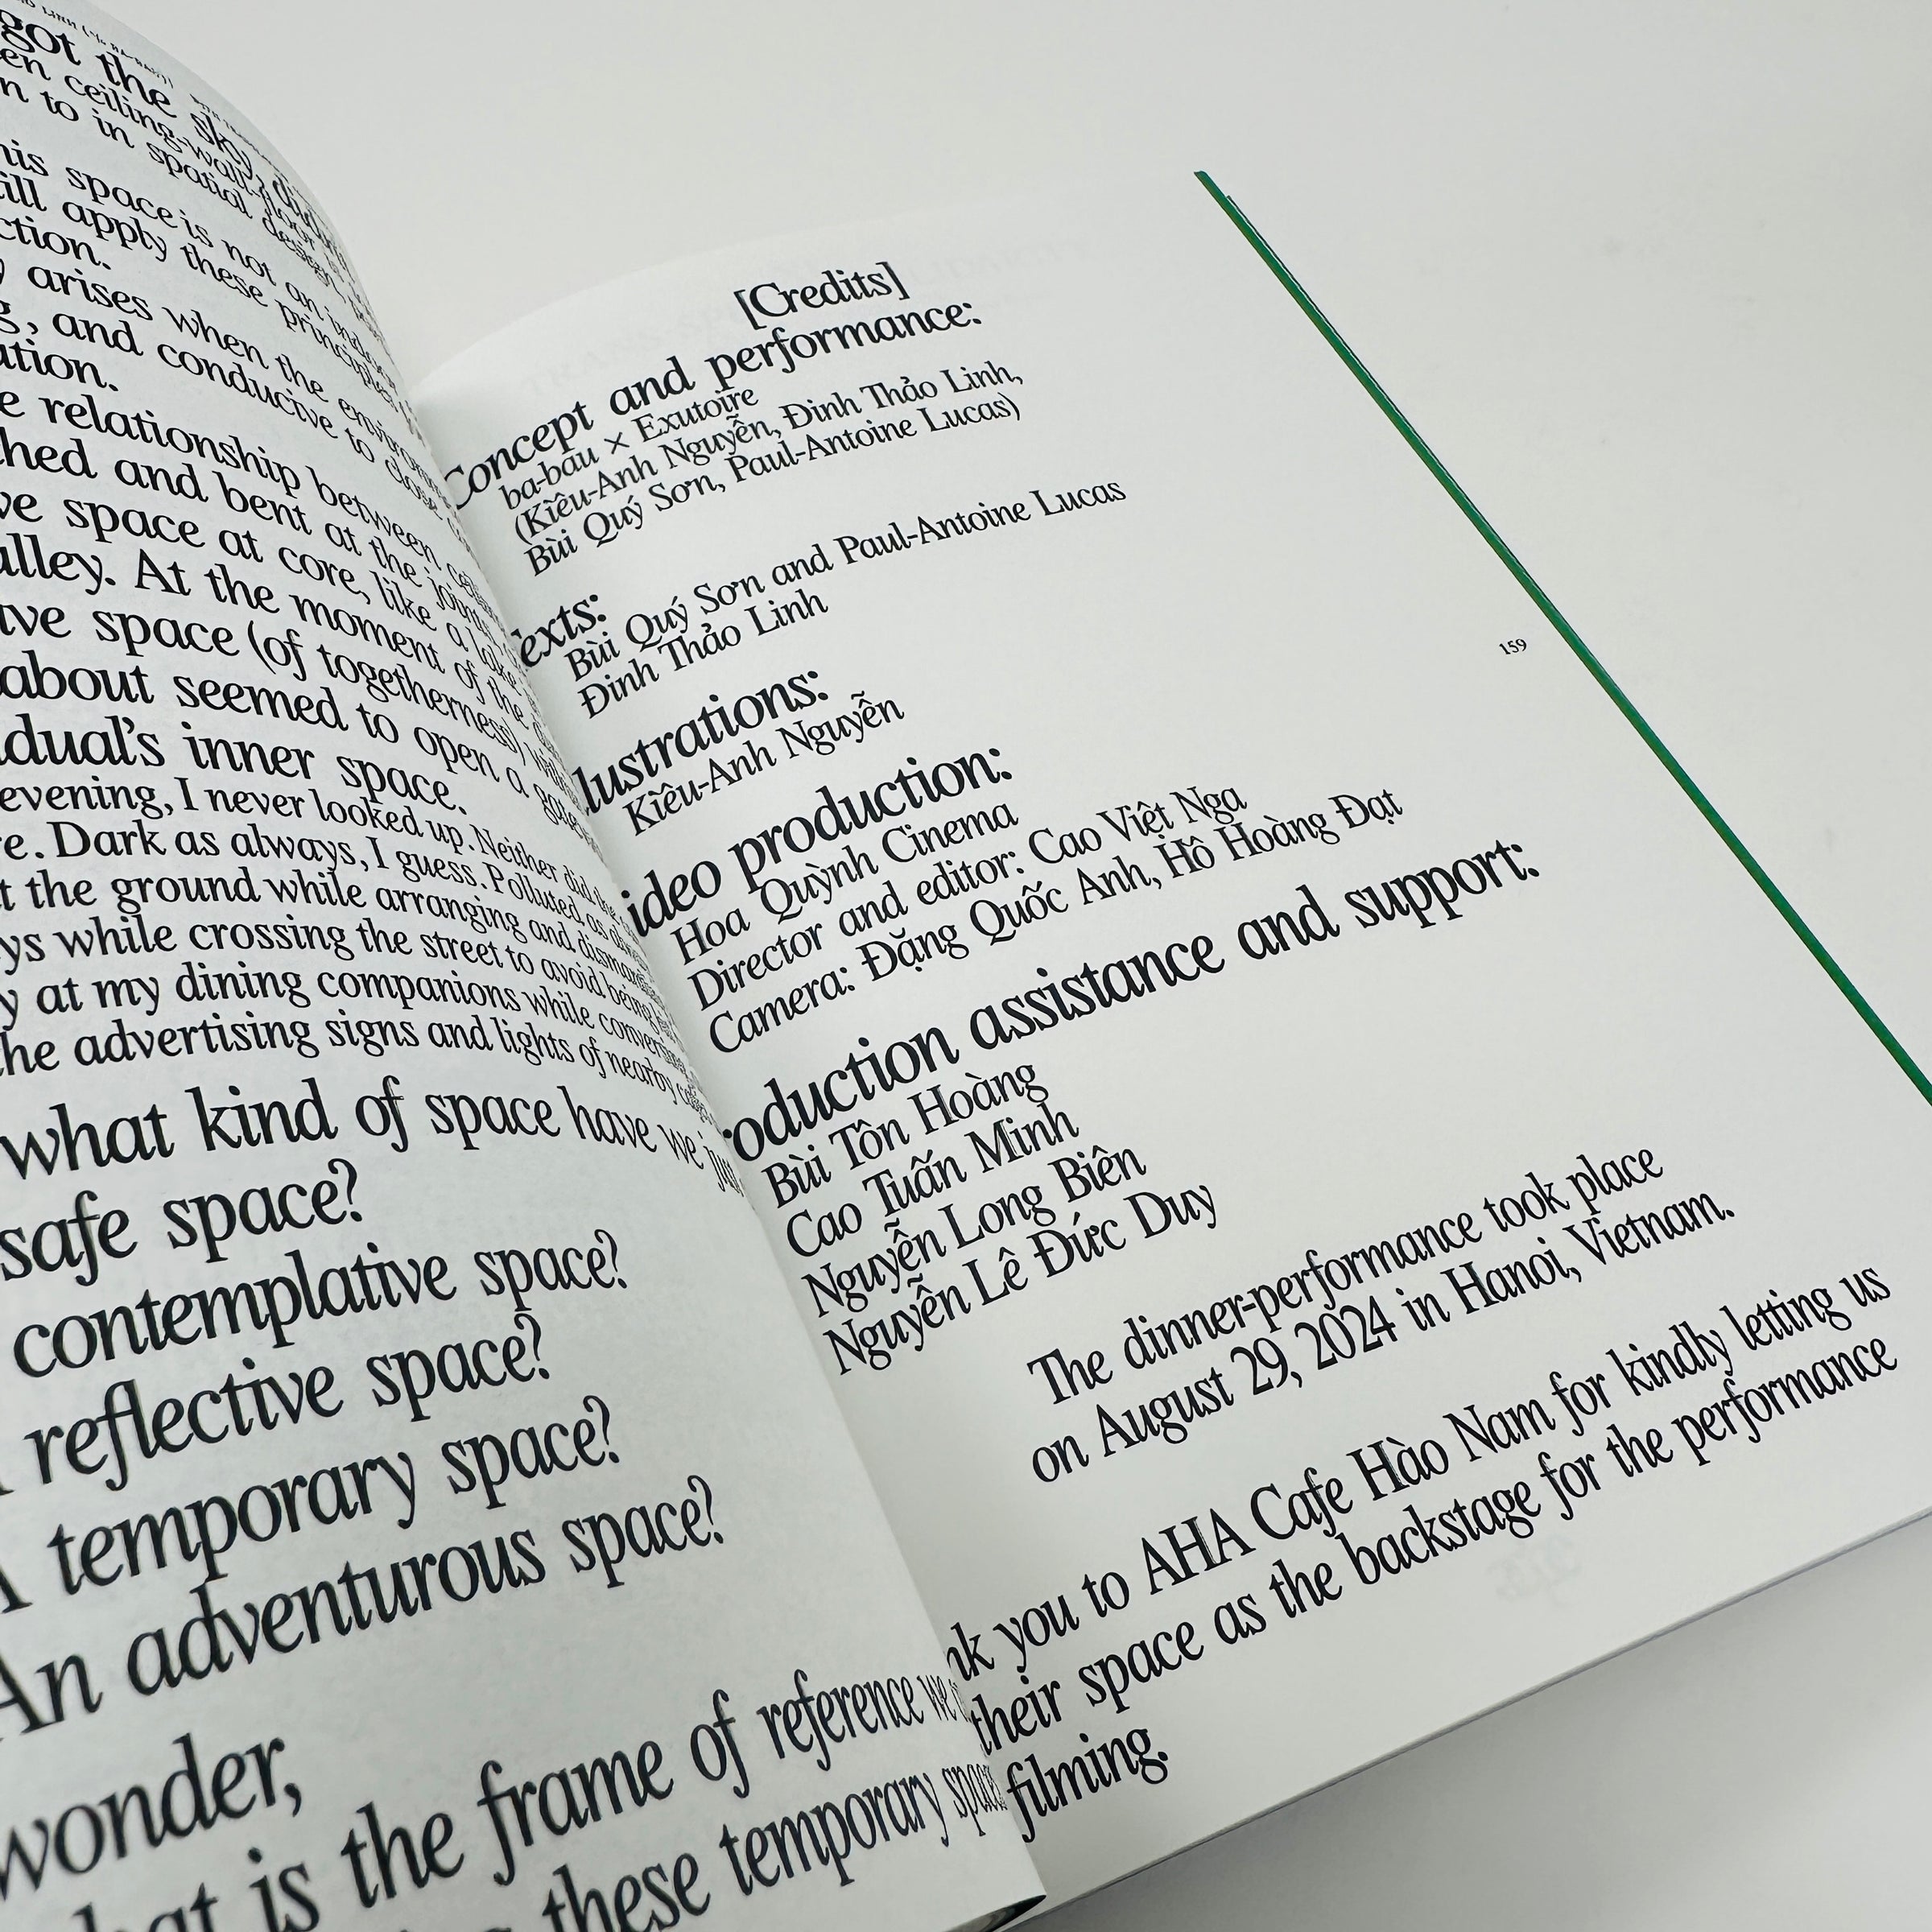 got the sky,
en ceiling-wall-floor
n to in spatial design,
his space is not an indoor
ill apply these principles
ction.
arises when the
, and conducive to close
ation.
e relationship between
hed and bent at the joints
ve space at core, like a lake
alley. At the moment of the
ive space (of togetherness)
about seemed to open a
dual's inner space.
evening, I never looked up. Neither did
re. Dark as always, I guess. Polluted as always
t the ground while arranging and
ys while crossing the street to avoid being
y at my dining companions while
he advertising signs and lights of nearby
what kind of space have we just
safe space?
contemplative space?
reflective space?
temporary space?
An adventurous space?
wonder,
hat is the frame of reference we
these temporary
[Credits]
Concept and performance:
ba-bau × Exutoire
(Kiêu-Anh Nguyễn, Đinh Thảo Linh,
Bùi Quý Sơn, Paul-Antoine Lucas)
exts:
Bùi Quý Sơn and Paul-Antoine Lucas
Đinh Thảo Linh
lustrations:
Kiêu-Anh Nguyễn
ideo production:
Hoa Quỳnh Cinema
Director and editor: Cao Việt Nga
Camera: Đặng Quốc Anh, Hồ Hoàng Đạt
oduction assistance and support:
Bùi Tôn Hoàng
Cao Tuấn Minh
Nguyễn Long Biên
Nguyễn Lê Đức Duy
159
The dinner-performance took place
on August 29, 2024 in Hanoi, Vietnam.
nk you to AHA Cafe Hào Nam for kindly letting us
their space as the backstage for the performance
filming.